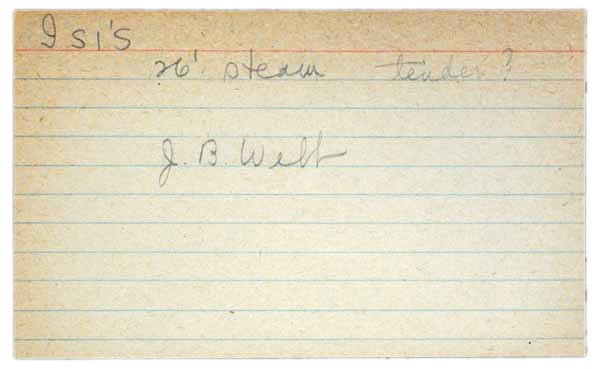 Isi's
26' steam tender?
J. B. Webb